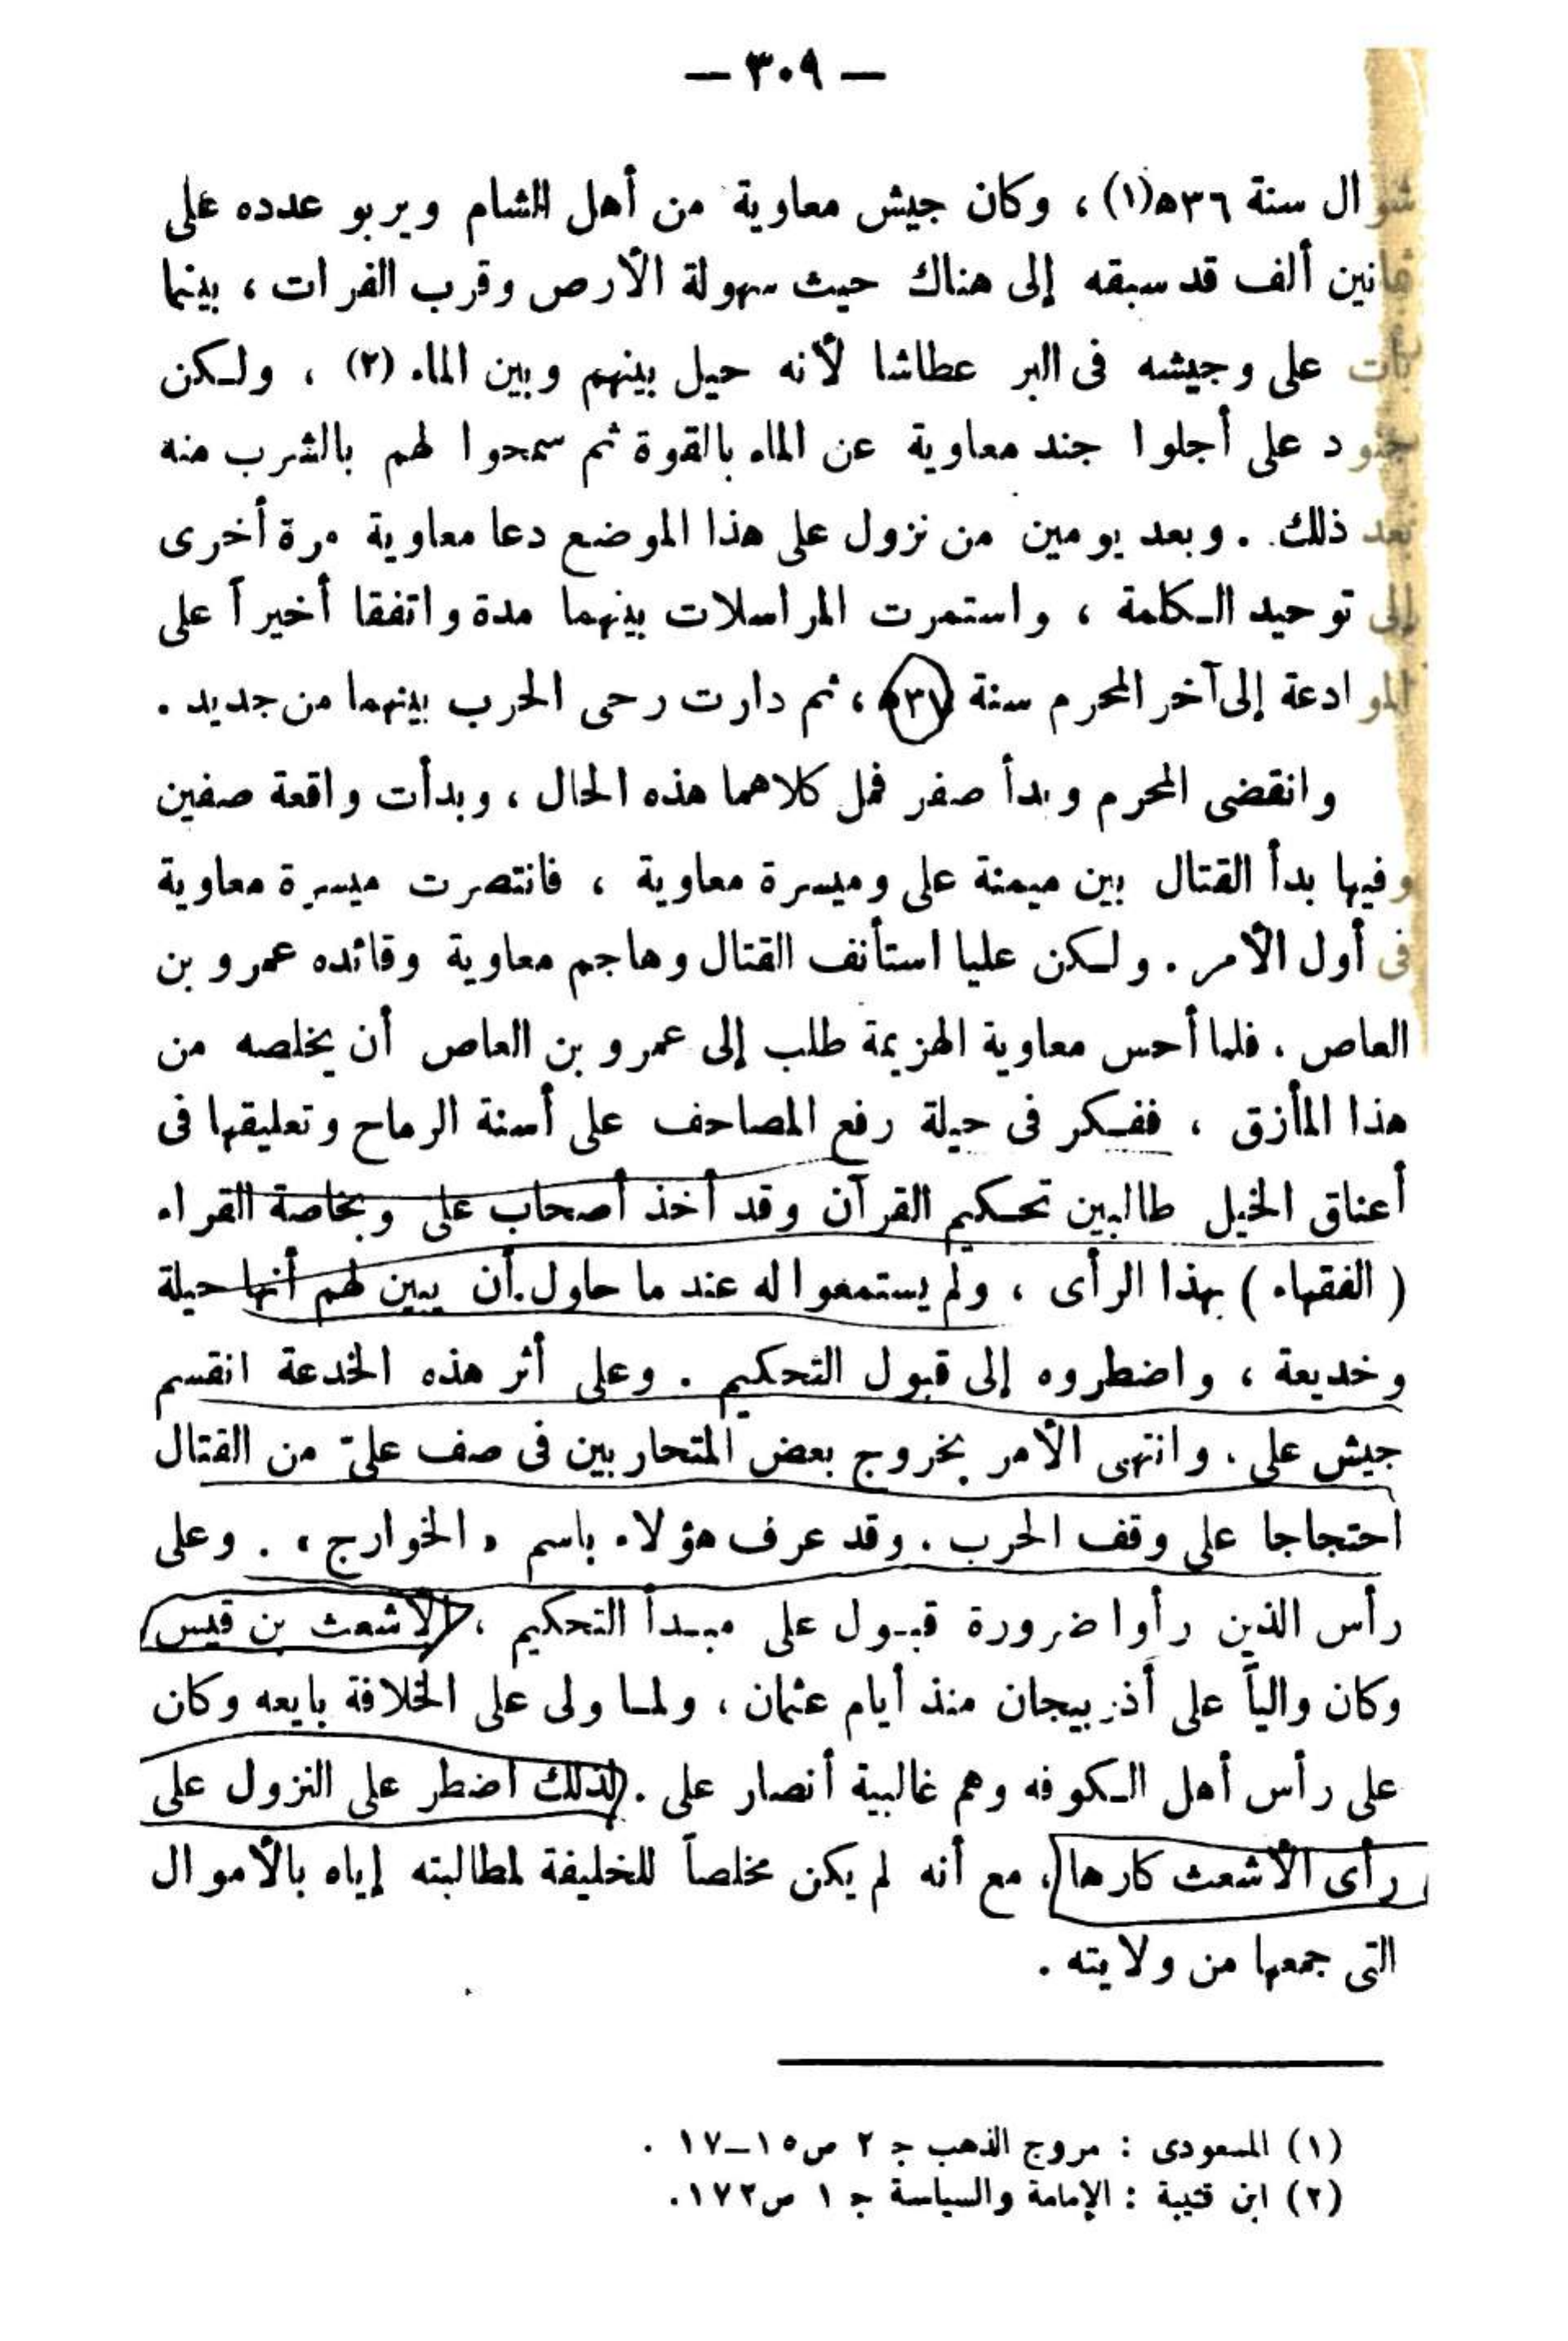 — ٣٠٩ —
شوال سنة ٣٦ه(١) ، وكان جيش معاوية من أهل الشام ويربو عدده على
ثمانين ألف قد سبقه إلى هناك حيث سهولة الأرض وقرب الفرات ، بينما
بات على وجيشه فى البر عطاشا لأنه حيل بينهم وبين الماء (٢) ، ولكن
جنود على أجلوا جند معاوية عن الماء بالقوة ثم سمحوا لهم بالشرب منه
بعد ذلك . وبعد يومين من نزول على هذا الموضع دعا معاوية مرة أخرى
إلى توحيد الكلمة ، واستمرت المراسلات بينهما مدة واتفقا أخيراً على
الموادعة إلى آخر المحرم سنة ٣٧ه ، ثم دارت رحى الحرب بينهما من جديد .
وانقضى المحرم وبدأ صفر فمل كلاهما هذه الحال ، وبدأت واقعة صفين
وفيها بدأ القتال بين ميمنة على وميسرة معاوية ، فانتصرت ميسرة معاوية
فى أول الأمر . ولكن عليا استأنف القتال وهاجم معاوية وقائده عمرو بن
العاص . فلما أحس معاوية الهزيمة طلب إلى عمرو بن العاص أن يخلصه من
هذا المأزق ، ففكر فى حيلة رفع المصاحف على أسنة الرماح وتعليقها فى
أعناق الخيل طالبين تحكيم القرآن وقد أخذ أصحاب على وبخاصة القراء
( الفقهاء ) بهذا الرأى ، ولم يستمعوا له عند ما حاول أن يبين لهم أنها حيلة
وخديعة ، واضطروه إلى قبول التحكيم . وعلى أثر هذه الخدعة انقسم
جيش على ، وانتهى الأمر بخروج بعض المتحاربين فى صف علىّ من القتال
احتجاجا على وقف الحرب . وقد عرف هؤلاء باسم « الخوارج » . وعلى
رأس الذين رأوا ضرورة قبول على مبدأ التحكيم ، الأشعث بن قيس
وكان والياً على أذربيجان منذ أيام عثمان ، ولما ولى على الخلافة بايعه وكان
على رأس أهل الكوفه وهم غالبية أنصار على . لذلك اضطر على النزول على
رأى الأشعث كارها ، مع أنه لم يكن مخلصاً للخليفة لمطالبته إياه بالأموال
التى جمعها من ولايته .
(١) المسعودى : مروج الذهب ج ٢ ص ١٥–١٧ .
(٢) ابن قتيبة : الإمامة والسياسة ج ١ ص ١٧٢.